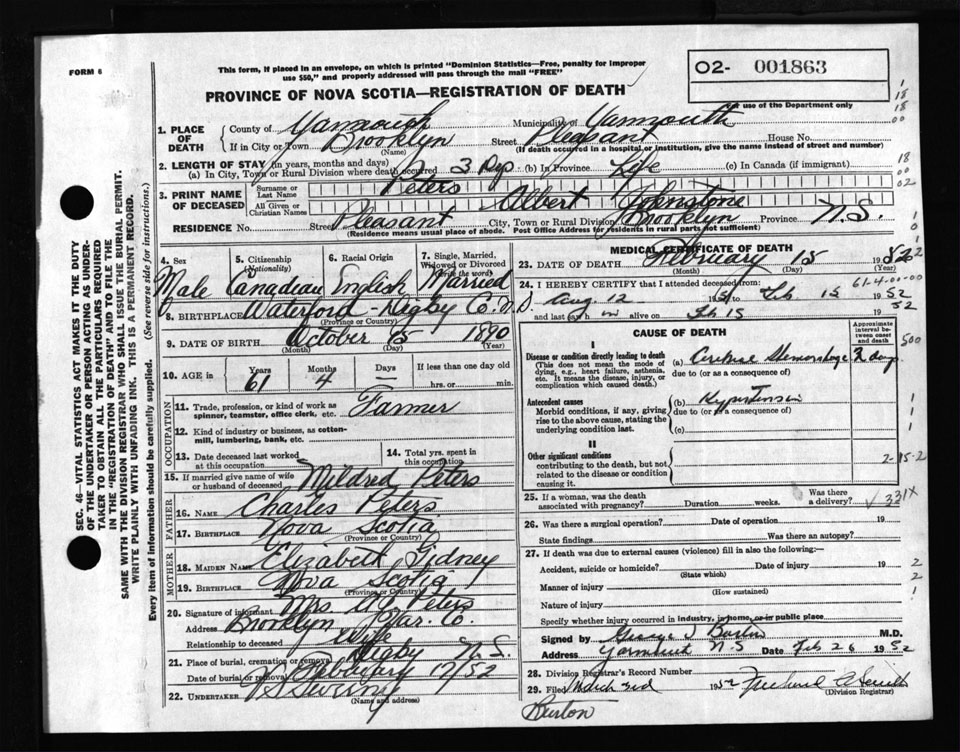 FORM 6
This form, if placed in an envelope, on which is printed "Dominion Statistics—Free, penalty for improper
use $50," and properly addressed will pass through the mail "FREE"
O2- 001863
For use of the Department only
PROVINCE OF NOVA SCOTIA—REGISTRATION OF DEATH
1. PLACE OF DEATH
County of Yarmouth Municipality of Yarmouth
If in City or Town Brooklyn Street Pleasant House No.
(Name) (If death occurred in a hospital or institution, give the name instead of street and number)
2. LENGTH OF STAY (in years, months and days)
(a) In City, Town or Rural Division where death occurred 3 (b) In Province Life (c) In Canada (if immigrant)
3. PRINT NAME OF DECEASED
Surname or Last Name Peters
All Given or Christian Names Albert Johnstone
RESIDENCE No. Street Pleasant City, Town or Rural Division Brooklyn Province N.S.
(Residence means usual place of abode. Post Office Address for residents in rural parts not sufficient)
4. Sex Male
5. Citizenship (Nationality) Canadian
6. Racial Origin English
7. Single, Married, Widowed or Divorced (Write the word) Married
8. BIRTHPLACE Waterford - Digby Co.
(Province or Country)
9. DATE OF BIRTH October 15 1890
(Month) (Day) (Year)
10. AGE in Years 61 Months 4 Days — If less than one day
hrs. or min.
OCCUPATION
11. Trade, profession, or kind of work as spinner, teamster, office clerk, etc. Farmer
12. Kind of industry or business, as cotton-mill, lumbering, bank, etc.
13. Date deceased last worked at this occupation
14. Total yrs. spent in this occupation
15. If married give name of wife or husband of deceased Mildred Peters
FATHER
16. Name Charles Peters
17. BIRTHPLACE Nova Scotia
(Province or Country)
MOTHER
18. MAIDEN NAME Elizabeth Gidney
19. BIRTHPLACE Nova Scotia
(Province or Country)
20. Signature of informant Mrs Peters
Address Brooklyn Yar. Co.
Relationship to deceased Wife
21. Place of burial, cremation or removal Digby N.S.
Date of burial or removal February 17/52
22. UNDERTAKER Sweeny
(Name and address)
MEDICAL CERTIFICATE OF DEATH
23. DATE OF DEATH February 15 1952
(Month) (Day) (Year)
24. I HEREBY CERTIFY that I attended deceased from
Aug 12 1951 Feb 15 1952
and last saw him alive on Feb 15 52
61-4-00-00
CAUSE OF DEATH
Approximate interval between onset and death
I
Disease or condition directly leading to death
(This does not mean the mode of dying, e.g., heart failure, asthenia, etc. It means the disease, injury, or complication which caused death.)
(a) Cerebral Hemorrhage 2 days
due to (or as a consequence of)
Antecedent causes
Morbid conditions, if any, giving rise to the above cause, stating the underlying condition last.
(b) Hypertension
due to (or as a consequence of)
(c)
II
Other significant conditions
contributing to the death, but not related to the disease or condition causing it.
2-15-2
25. If a woman, was the death associated with pregnancy? Duration weeks. Was there a delivery?
331X
26. Was there a surgical operation? Date of operation 19
State findings Was there an autopsy?
27. If death was due to external causes (violence) fill in also the following:—
Accident, suicide or homicide? Date of injury 19
(State which)
Manner of injury
(How sustained)
Nature of injury
Specify whether injury occurred in industry, in home, or in public place
Signed by M.D.
Address Yarmouth N.S Date Feb 26 1952
28. Division Registrar's Record Number
29. Filed March 3rd 1952
(Division Registrar)
Burton
SEC. 46—VITAL STATISTICS ACT MAKES IT THE DUTY
OF THE UNDERTAKER OR PERSON ACTING AS UNDER-
TAKER TO OBTAIN ALL THE PARTICULARS REQUIRED
IN THE "REGISTRATION OF DEATH" AND TO FILE THE
SAME WITH THE DIVISION REGISTRAR WHO SHALL ISSUE THE BURIAL PERMIT.
WRITE PLAINLY WITH UNFADING INK. THIS IS A PERMANENT RECORD.
Every item of information should be carefully supplied. (See reverse side for instructions.)